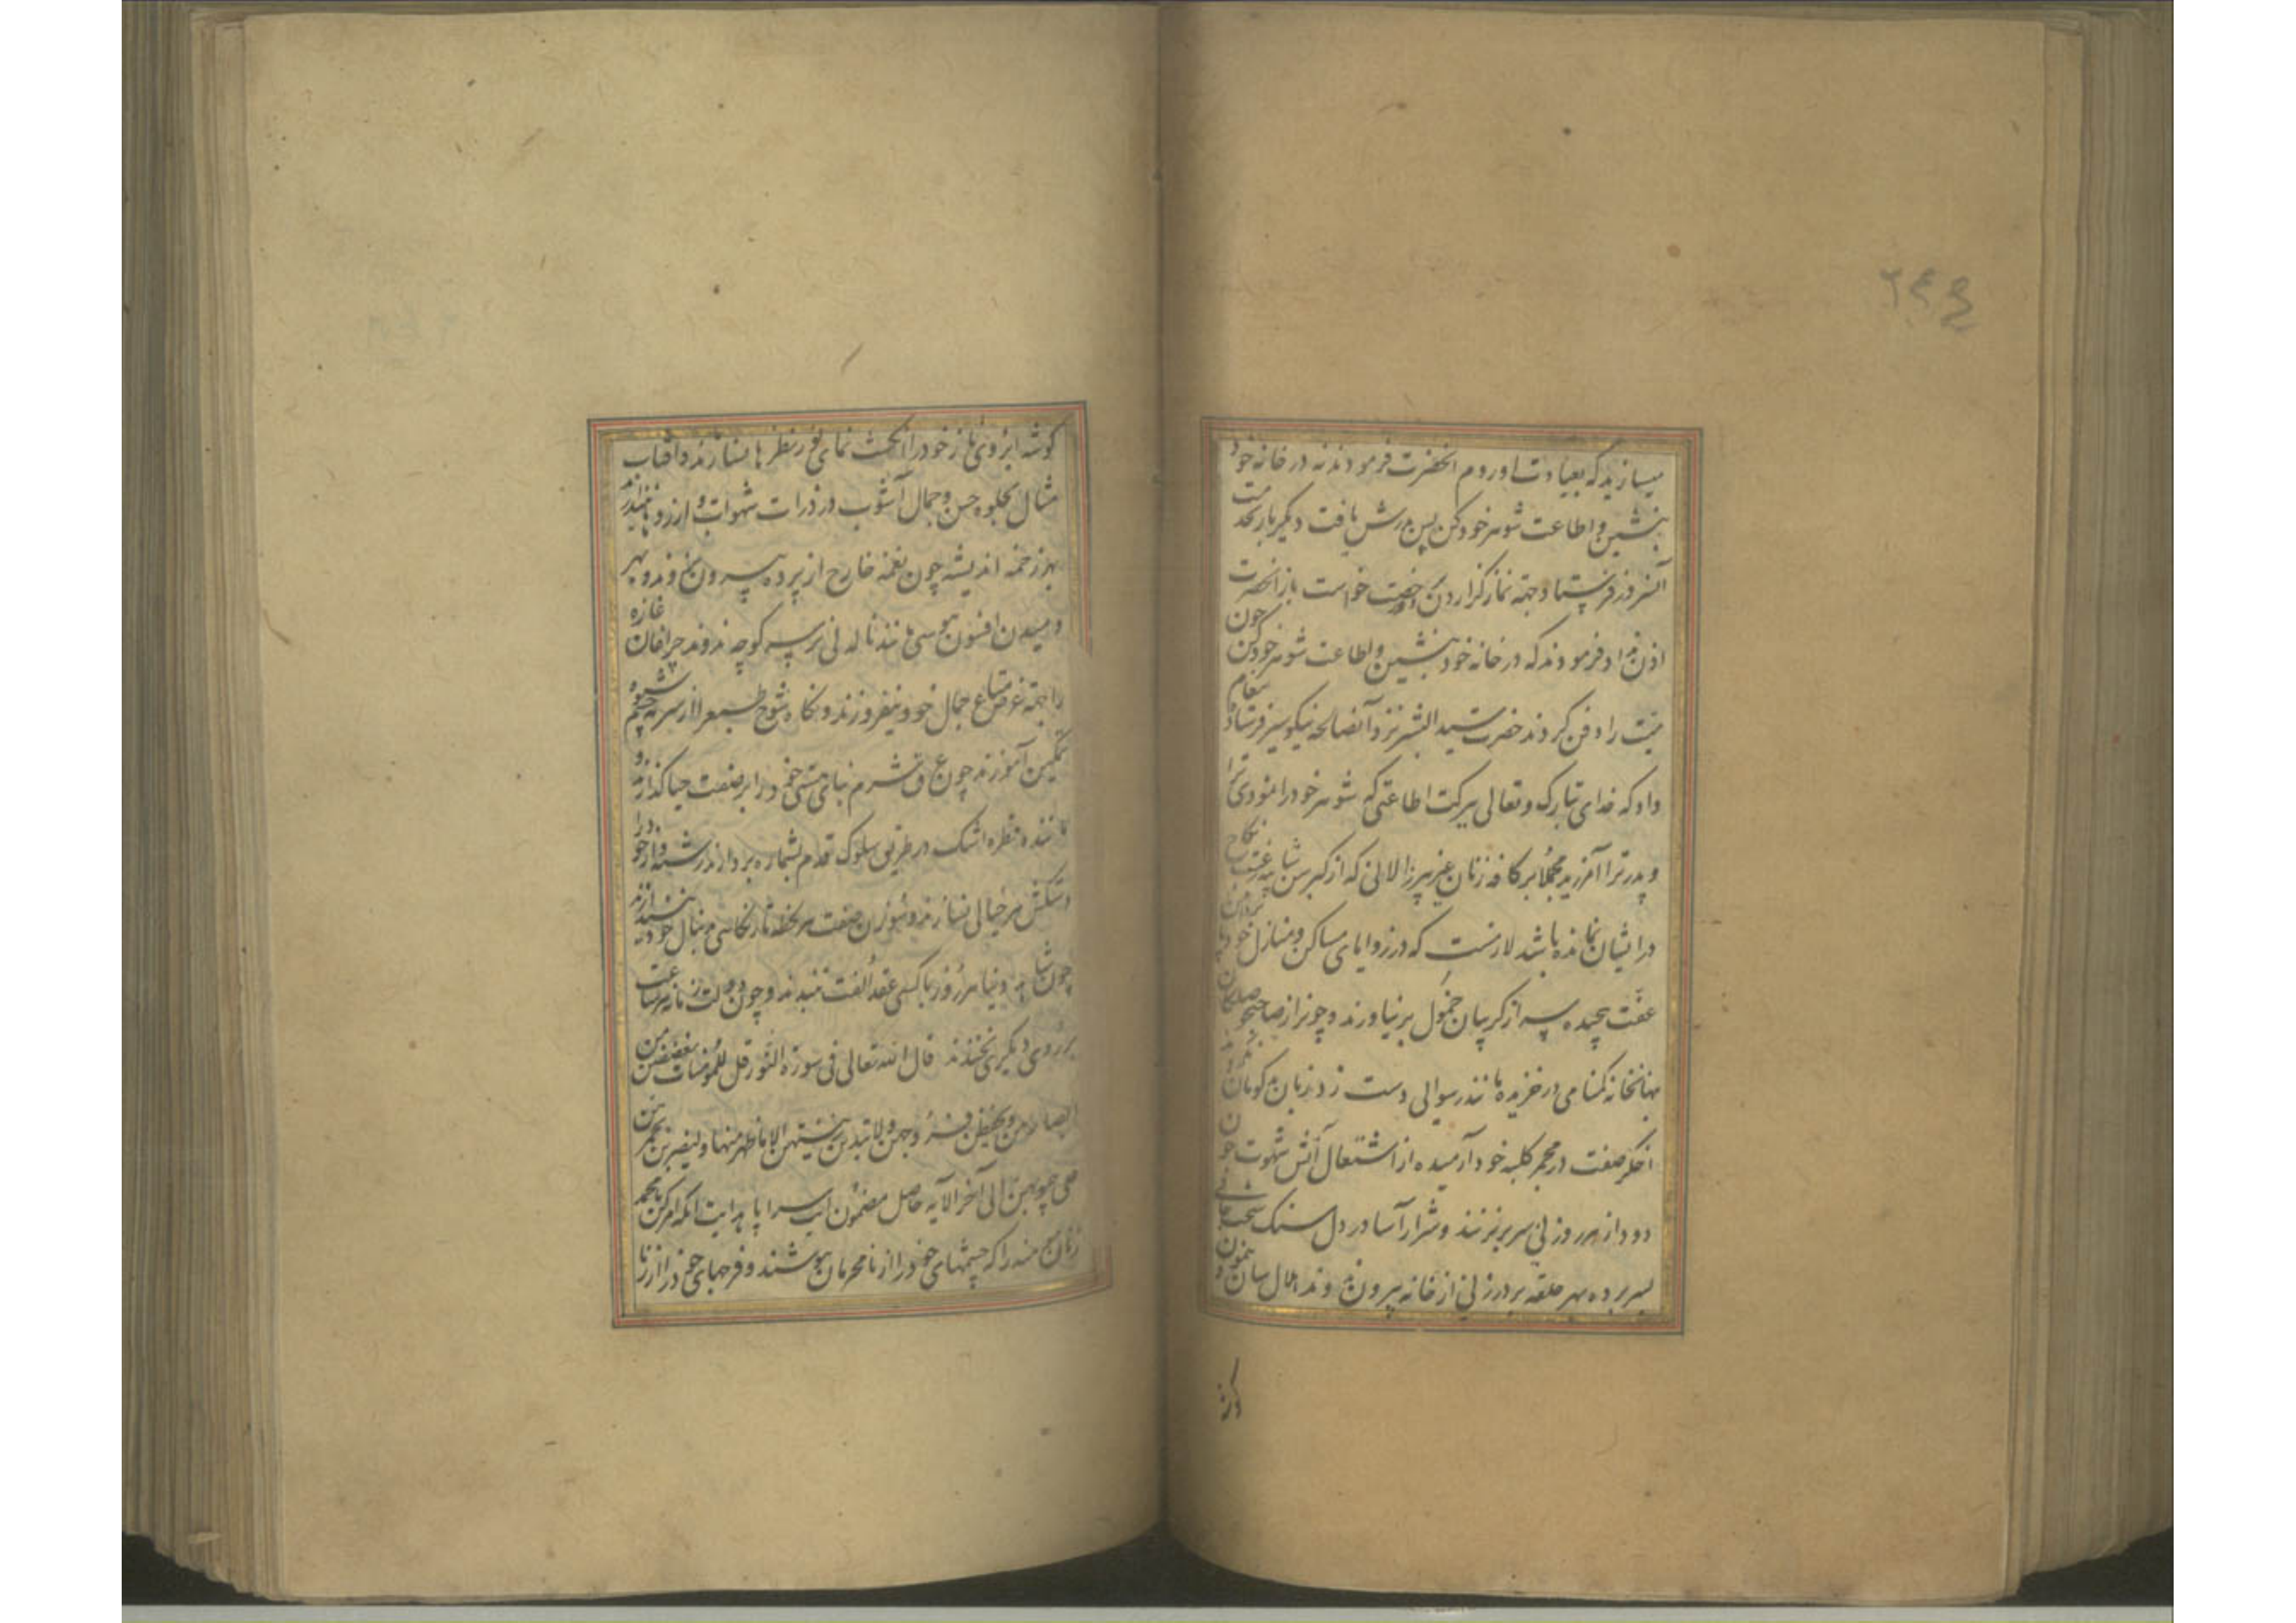 ۲۴۴
میسازید که بعیادت او روم آنحضرت فرمودند نه در خانه خود
بنشین و اطاعت شوهر خود کن پس پدرش یافت دیگر بار بخدمت
آنسرور فرستاد و جهة نماز گزاردن رخصت خواست باز آنحضرت
اذن نداد فرمودند که در خانه خود بنشین و اطاعت شوهر خود کن چون
میت را دفن کردند حضرت سید البشر نزد آنصالحه نیکو سیر پیغام فرستاد
داد که خدای تبارک و تعالی ببرکت اطاعتی که شوهر خود را نمودی ترا
و پدر ترا آمرزید مجملا بر کافه زنان غیر پیر زالانی که از کبر سن شایبه رغبت نکاح
در ایشان نمانده باشد لازمست که در زوایای مساکن و منازل خود
عفت پیچیده سر از گریبان خمول بر نیاورند و چون راز صاحبدلان
نهانخانه گمنامی در خزیده مانند رسوائی دست زد زبان بدگویان
اخگر صفت در مجمر کلبه خود آرمیده از اشتعال آتش شهوت
دود از هر روزنی سر بر نزنند و شرار آسا در دل سنک سخت
بسر برده بهر حلقه بر در زنی از خانه بیرون ندوند هلال سان
گوشه
گوشه ابروی ناز خود را انگشت نمای نظرها نسازند و آفتاب
مثال بجلوه حسن و جمال آشوب در ذرات شهوات و آرزوها نیندازند
بهر زخمه اندیشه چون نغمه خارج از پرده بیرون نروند و بهر
دمیدن افسون هوسی مانند ناله نی بر سر کوچه ندوند چراغان غازه
را جهة عرض متاع جمال خود نیفروزند و نگاه شوخ طبع را از سرمه شیوه
تمکین آموزند چون عرق شرم بنای هستی خود را بر صفت حیا گذارند و
مانند قطره اشک در طریق سلوک قدم بشماره بردارند رشته وار خود را
دستکش هر خیالی نسازند و سوزن صفت هر لحظه تار نگاهی دنبال خود نیندازند
چون شاهد دنیا هر روز با کسی عقد الفت نبندند و چون دولت زمانه هر ساعت
بر روی دیگری نخندند قال الله تعالی فی سورة النور قل للمؤمنات یغضضن من
ابصارهن و یحفظن فروجهن و لا یبدین زینتهن الا ما ظهر منها و لیضربن بخمرهن
علی جیوبهن الی آخر الآیه حاصل مضمون این سراپا هدایت آنکه امر کن یا محمد
زنان مؤمنه را که چشمهای خود را از نامحرمان بپوشند و فرجهای خود را از زنا